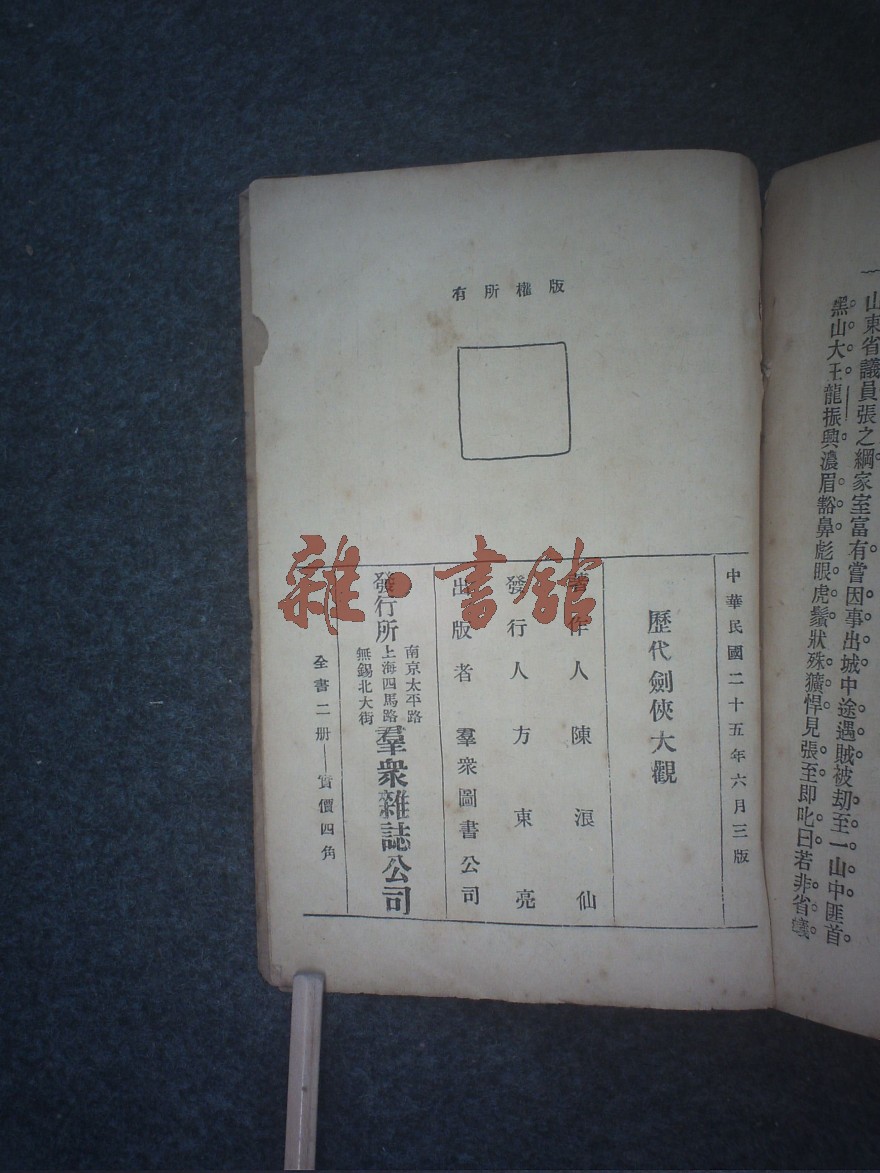 山東省議員張之綱家室富有嘗因事出城中途遇賊被劫至一山中匪首
黑山大王龍振興濃眉豁鼻彪眼虎鬚狀殊獷悍見張至即叱曰若非省議
版權所有
中華民國二十五年六月三版
歷代劍俠大觀
著作人 陳浪仙
發行人 方東亮
出版者 羣衆圖書公司
發行所
南京太平路
上海四馬路
無錫北大街
羣衆雜誌公司
全書二册——實價四角
雜·書館